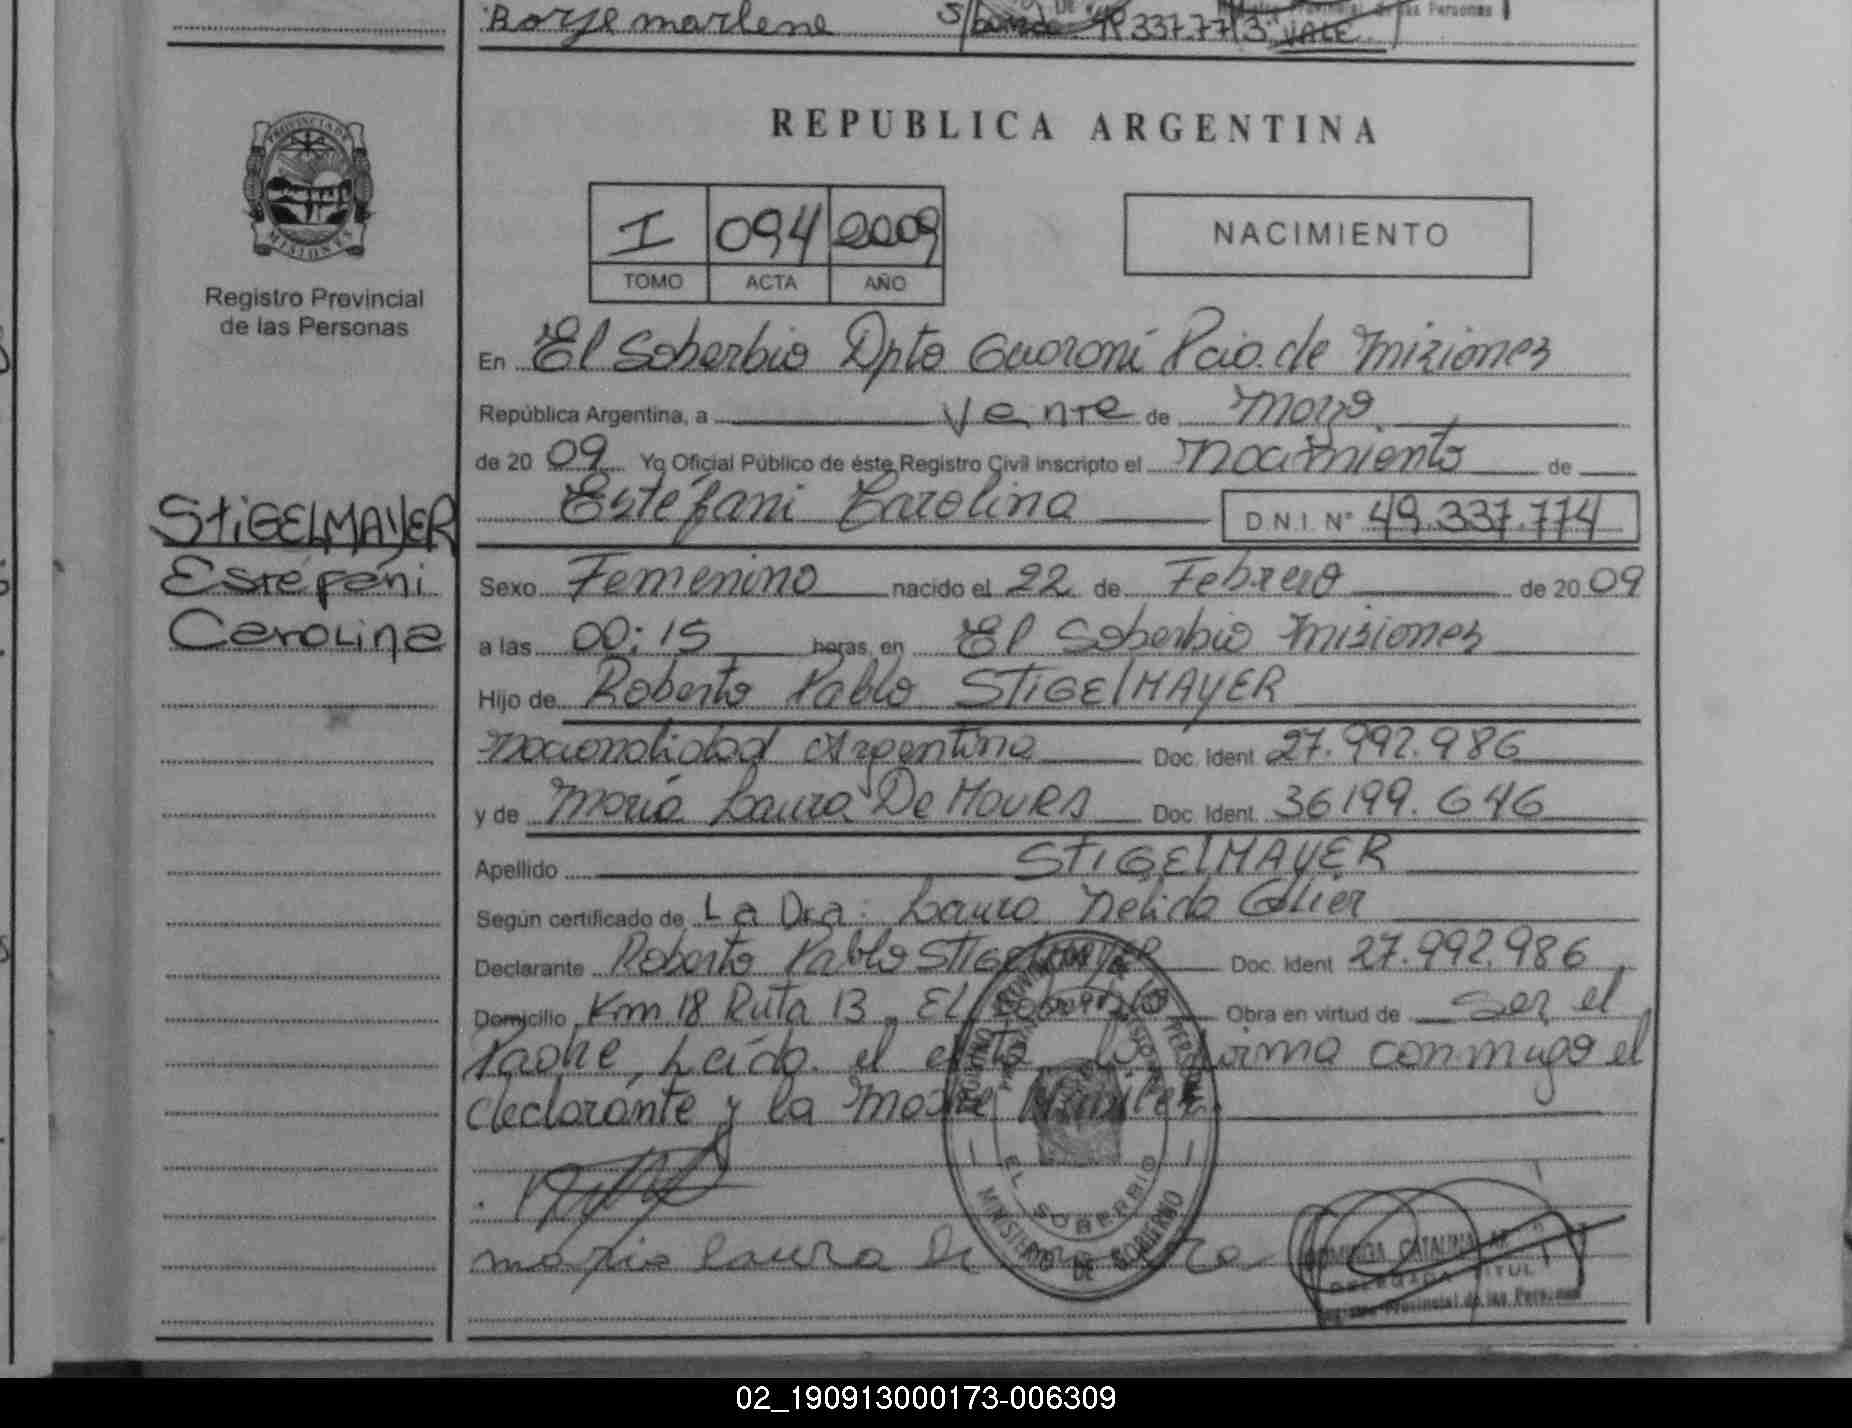 Borje marlene S/ 19 337.773 VALE
REPUBLICA ARGENTINA
PROVINCIA DE
MISIONES
Registro Provincial
de las Personas
I 094 2009
TOMO ACTA AÑO
NACIMIENTO
En El Soberbio Dpto Guaraní Pcia. de Misiones
República Argentina, a veinte de Mayo
de 20 09 Yo Oficial Público de éste Registro Civil inscripto el Nacimiento de
Estéfani Carolina D.N.I. N° 49.337.774
STIGELMAYER
Estéfani
Carolina
Sexo Femenino nacido el 22 de Febrero de 20 09
a las 00:15 horas, en El Soberbio Misiones
Hijo de Roberto Pablo STIGELMAYER
Nacionalidad Argentina Doc. Ident. 27.992.986
y de María Laura De MOURA Doc. Ident. 36199.646
Apellido STIGELMAYER
Según certificado de La Dra: Laura Nelida
Declarante Roberto Pablo STIGELMAYER Doc. Ident 27.992.986
Domicilio Km 18 Ruta 13, EL Soberbio Obra en virtud de Ser el
Padre, Leída el acta la firma conmigo el
declarante y la Madre
EL SOBERBIO
MINISTERIO DE GOBIERNO
maria laura De
CATALINA
DELEGADA TITUL
Provincial de las Personas
02_190913000173-006309